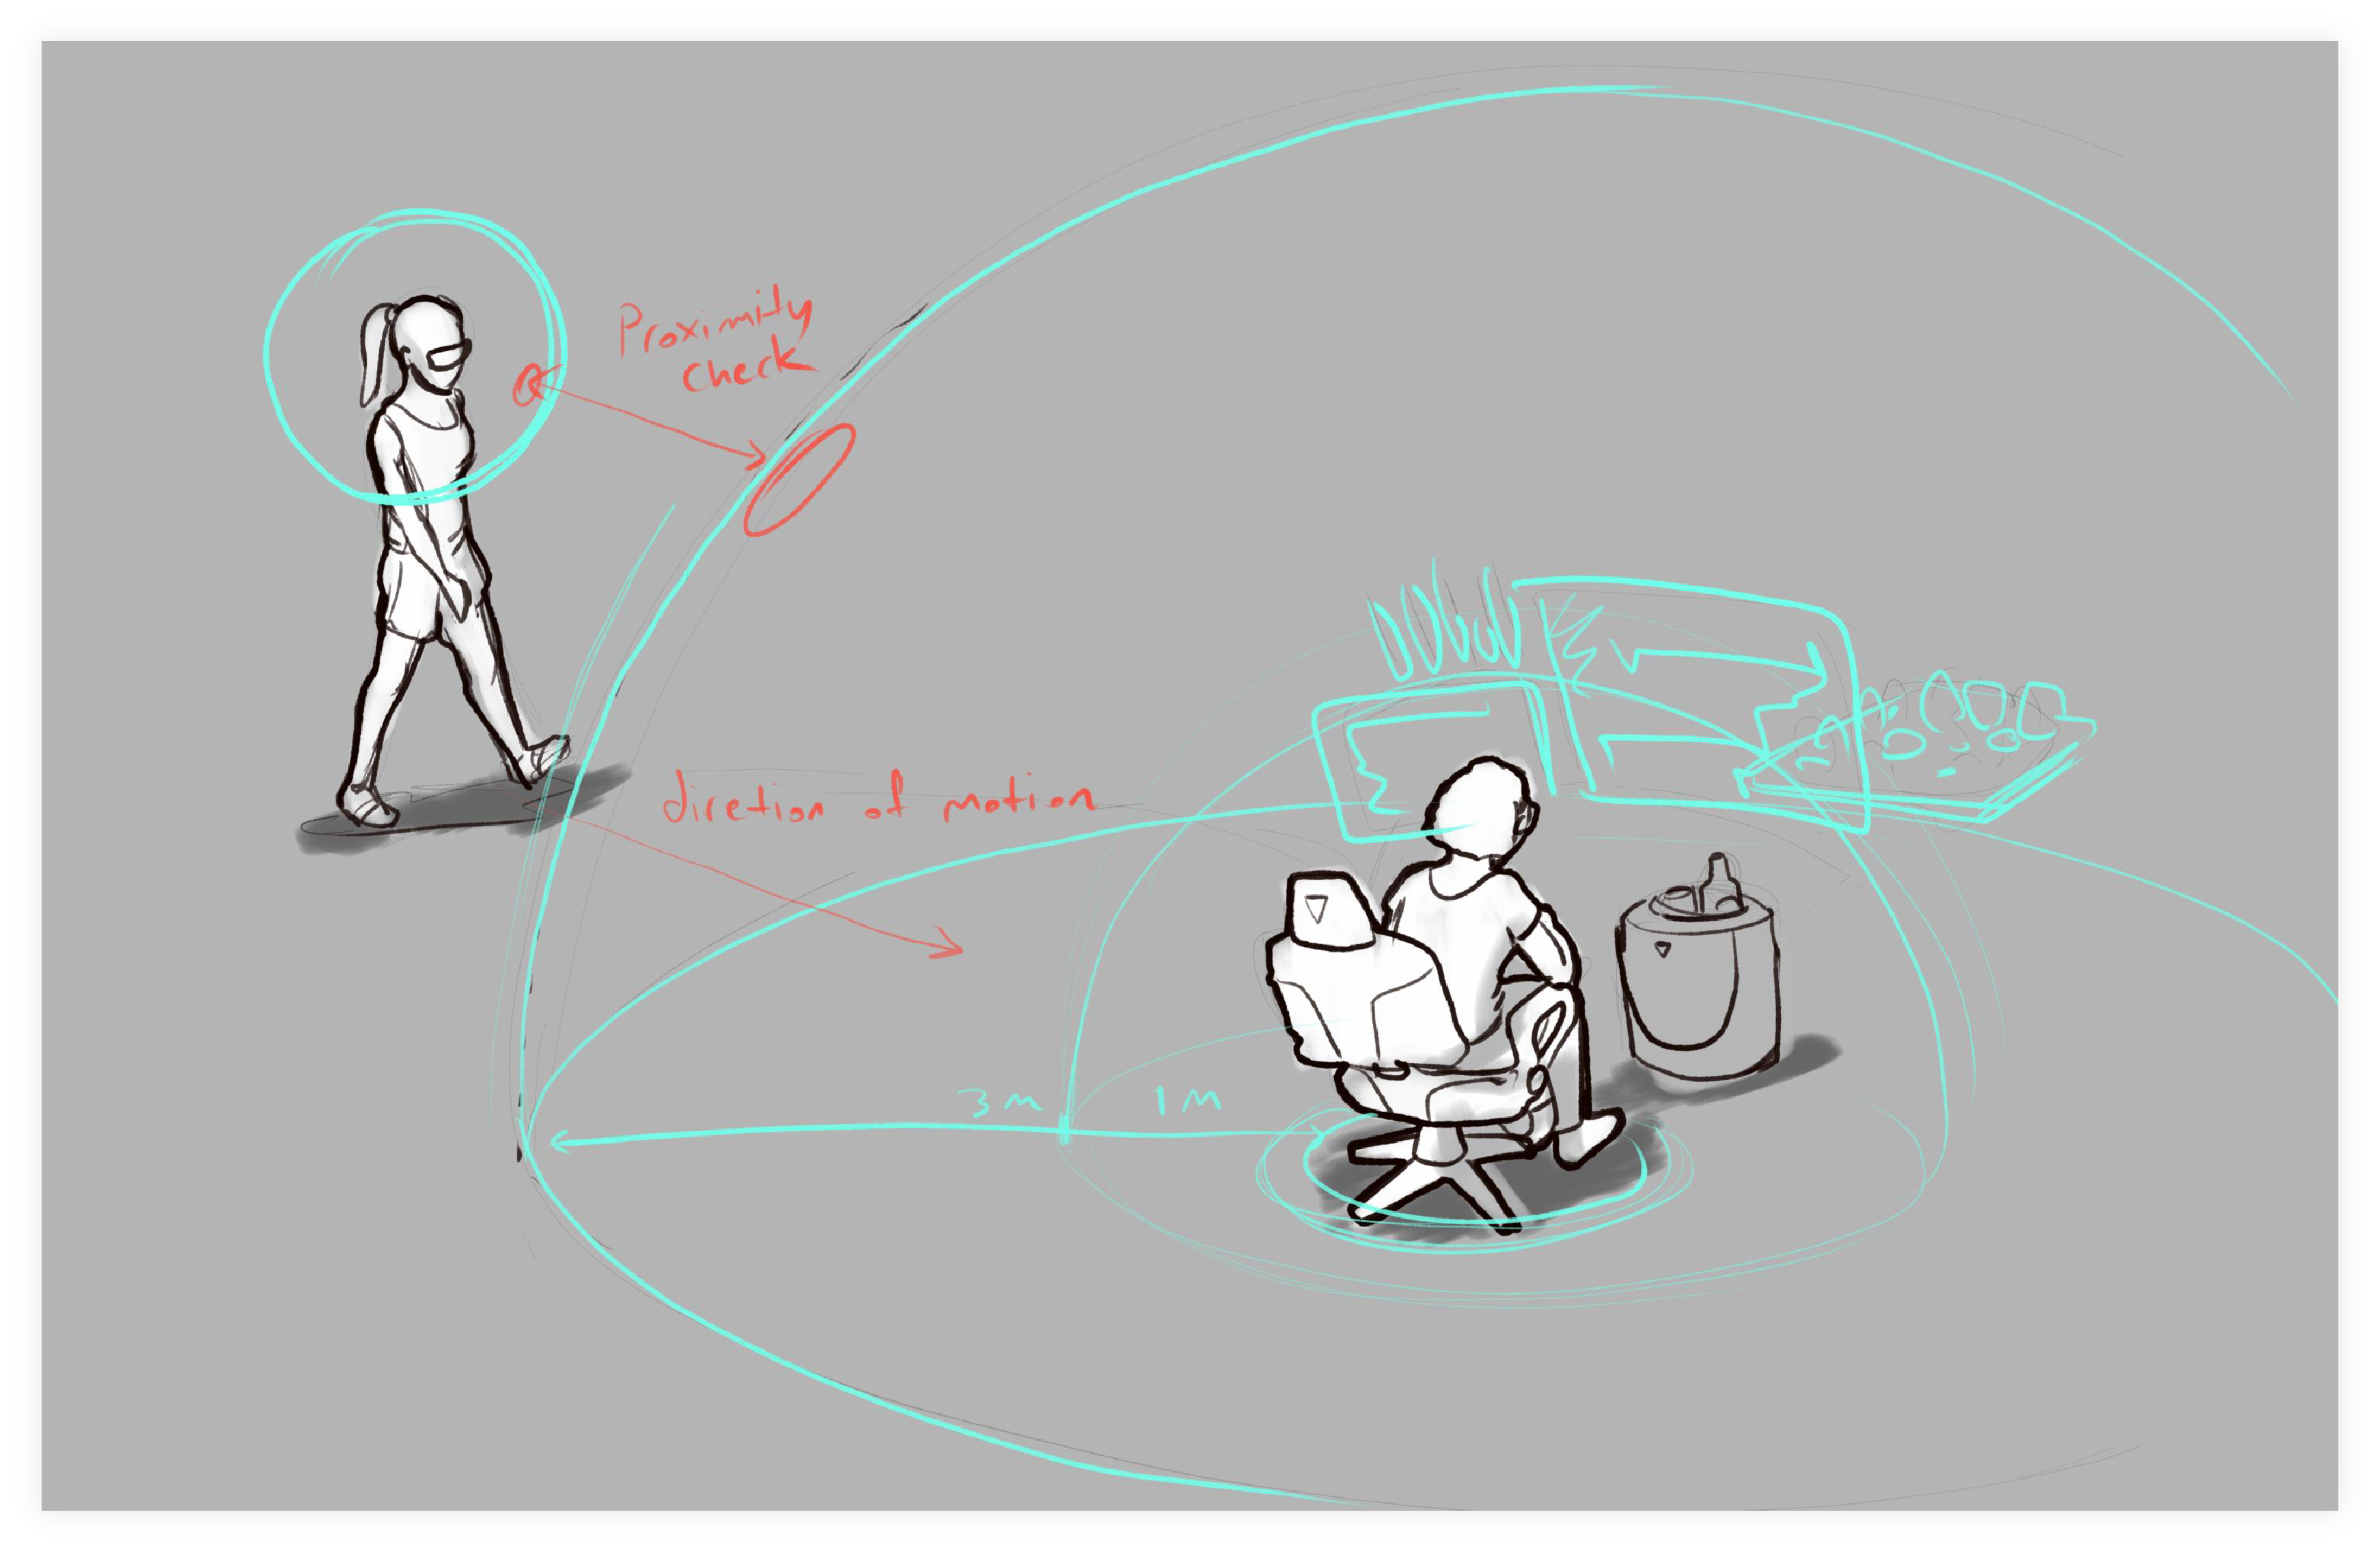 Proximity
check
diretion of motion
3 m
1 M